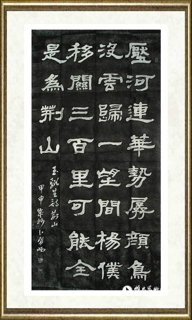 壓河連華勢孱顔鳥
沒雲歸一望間楊僕
移關三百里可能全
是為荆山
玉谿生詩荆山
甲申